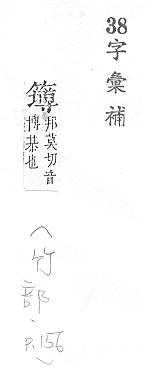 38字彙補
簿邦莫切音
博蠶也
(竹部、P.156)